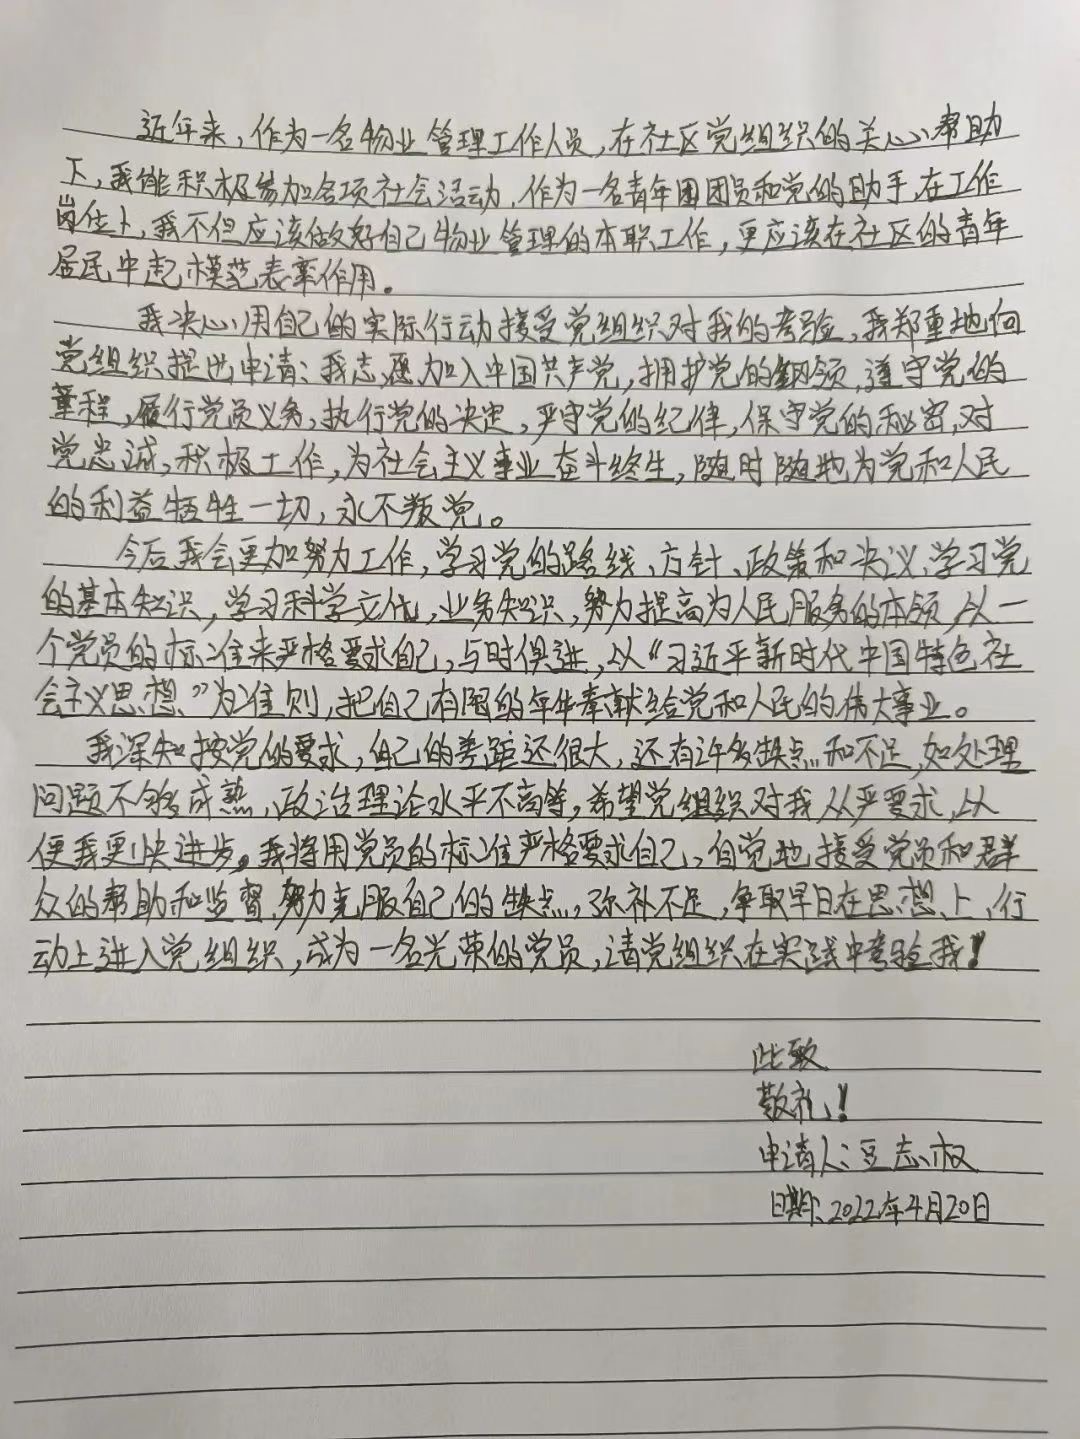 近年来，作为一名物业管理工作人员，在社区党组织的关心、帮助
下，我能积极参加各项社会活动，作为一名青年团团员和党的助手，在工作
岗位上，我不但应该做好自己物业管理的本职工作，更应该在社区的青年
居民中起模范表率作用。
我决心用自己的实际行动接受党组织对我的考验，我郑重地向
党组织提出申请：我志愿加入中国共产党，拥护党的纲领，遵守党的
章程，履行党员义务，执行党的决定，严守党的纪律，保守党的秘密，对
党忠诚，积极工作，为社会主义事业奋斗终生，随时随地为党和人民
的利益牺牲一切，永不叛党。
今后我会更加努力工作，学习党的路线、方针、政策和决议，学习党
的基本知识，学习科学文化，业务知识，努力提高为人民服务的本领，从一
个党员的标准来严格要求自己，与时俱进，以“习近平新时代中国特色社
会主义思想”为准则，把自己有限的年华奉献给党和人民的伟大事业。
我深知按党的要求，自己的差距还很大，还有许多缺点和不足，如处理
问题不够成熟，政治理论水平不高等，希望党组织对我从严要求，以
便我更快进步。我将用党员的标准严格要求自己，自觉地接受党员和群
众的帮助和监督，努力克服自己的缺点，弥补不足，争取早日在思想上、行
动上进入党组织，成为一名光荣的党员，请党组织在实践中考验我！
此致
敬礼！
申请人：豆志权
日期：2022年4月20日